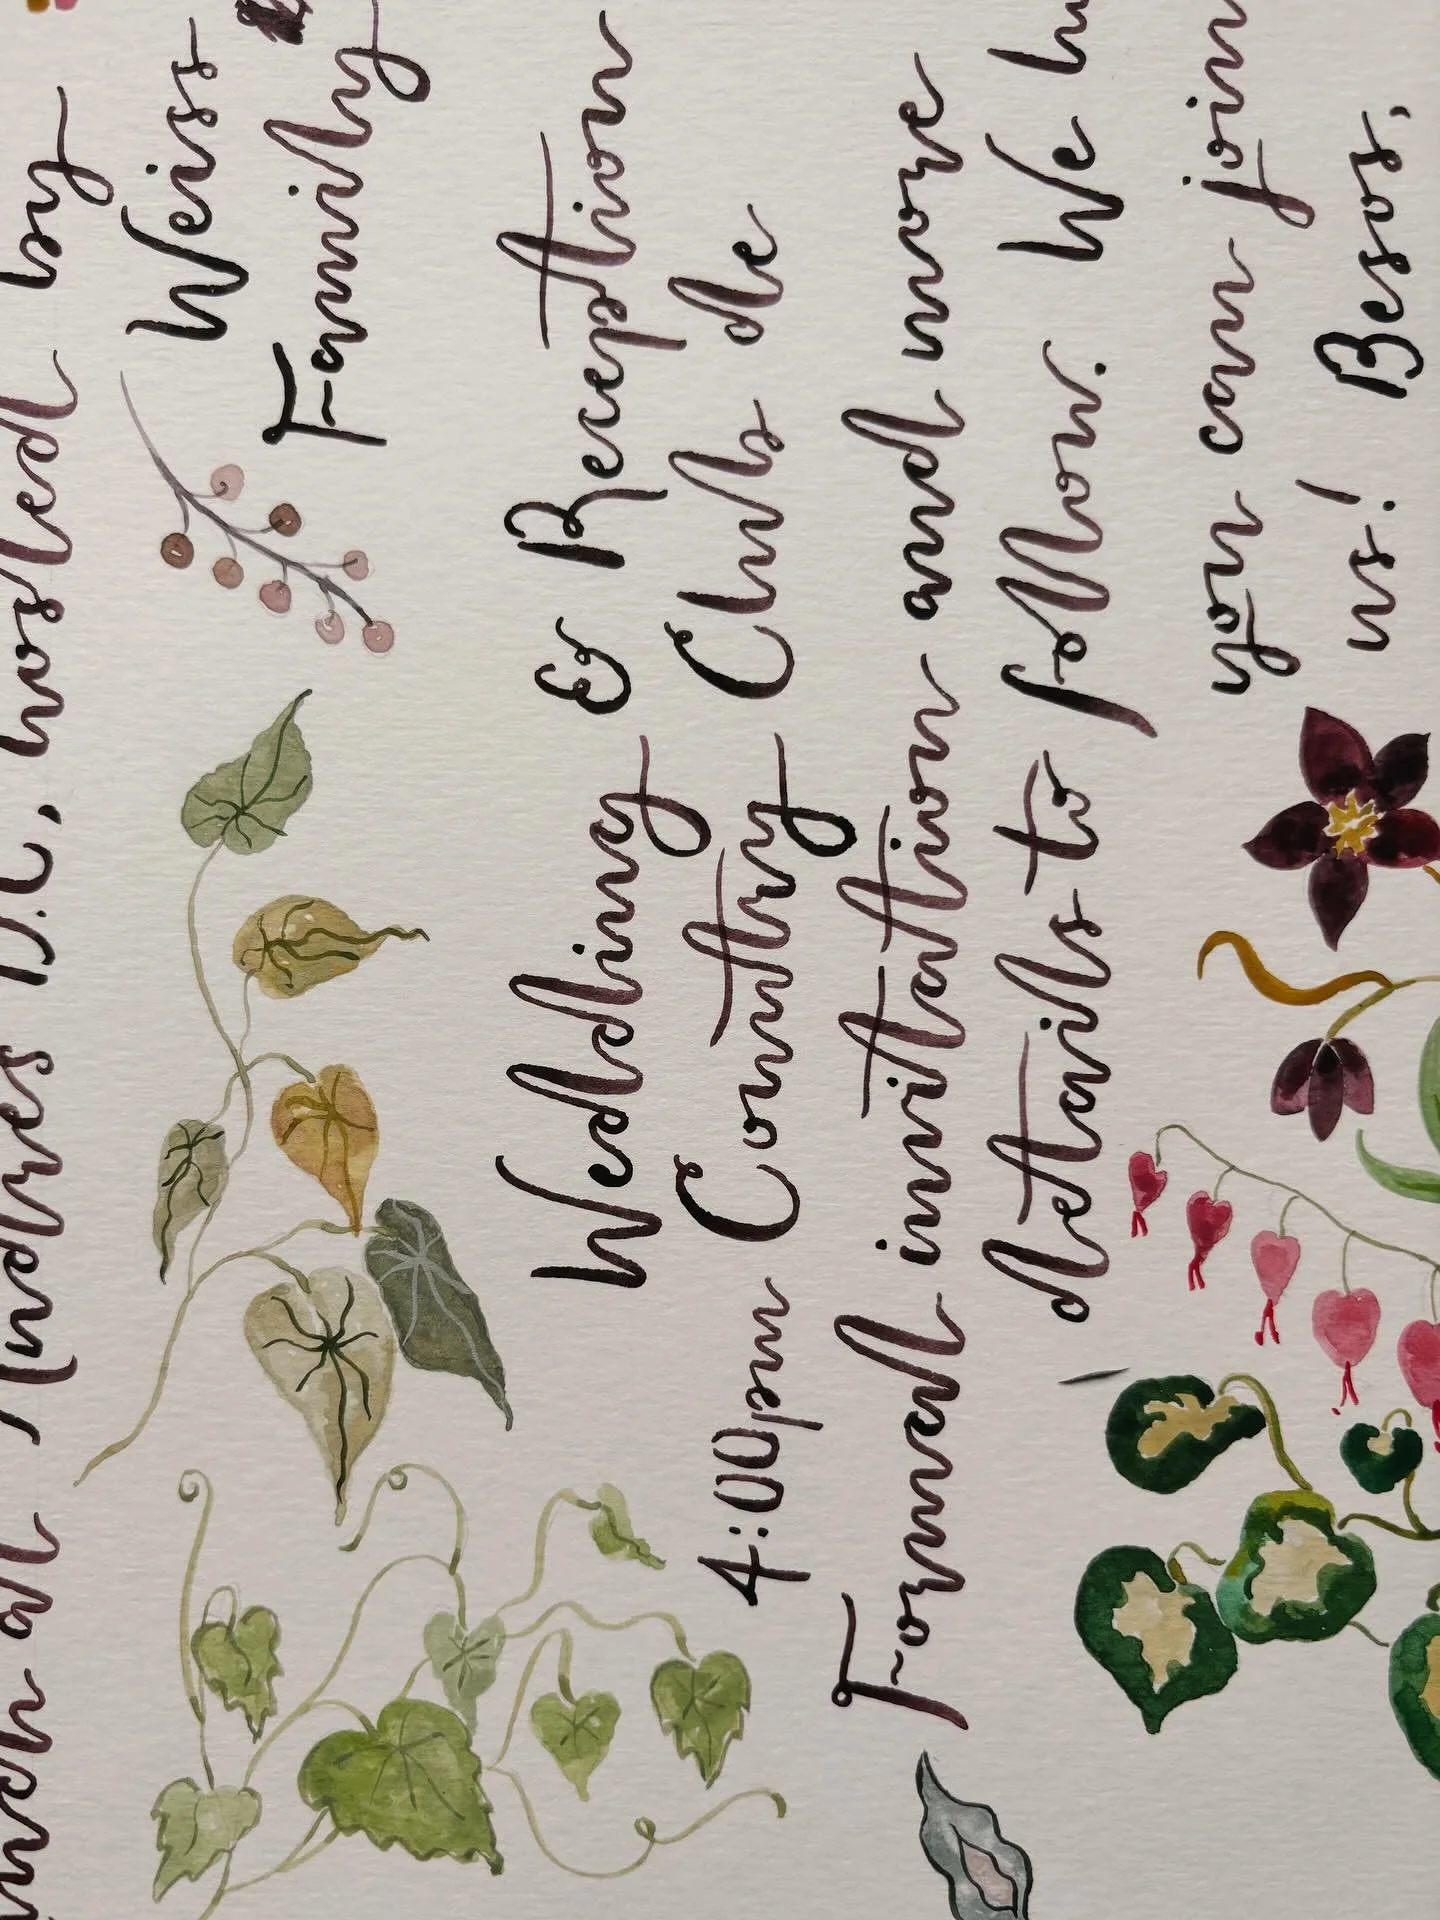 at Andres D.C., hosted by
Weiss
Family
Wedding & Reception
4:00pm Country Club de
Formal invitation and more
details to follow. We
you can join
us! Besos,